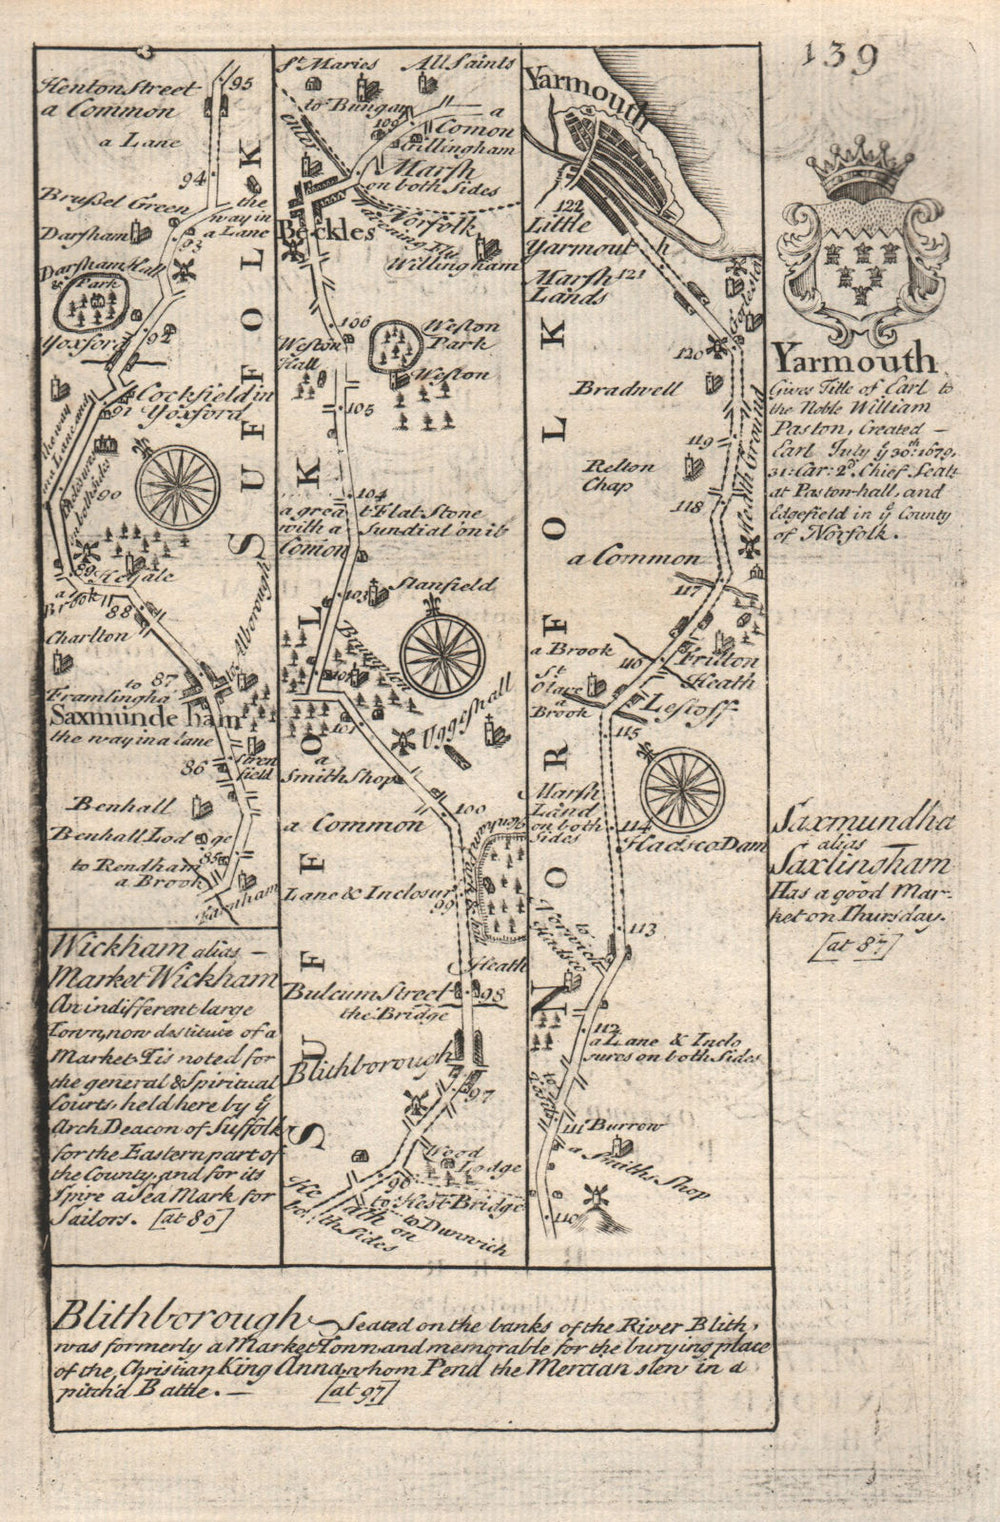 139
Henton Street
a Common
a Lane
95
94
Brussel Green
the
way in
a Lane
Darsham
93
Darsham Hall
& Park
Yoxford
92
Cockfield in
Yoxford
91
the way
in a Lane and
90
89
Kelsale
a
Brook
88
Charlton
to Alborough
87
to
Framlingha
Saxmunde ham
the way in a lane
86
Stern
field
Benhall
Benhall Lodge
85
to Rendham
a Brook
Farnham
SUFFOLK
Wickham alias —
Market Wickham
An indifferent large
Town, now destitute of a
Market Tis noted for
the general & Spiritual
Courts, held here by ye
Arch Deacon of Suffolk
for the Eastern part of
the County, and for its
Spire a Sea Mark for
Sailors. [at 80]
St. Maries
All Saints
to Bungay
109
a
Comon
Gillingham
enter
Marsh
on both Sides
Norfolk
Beckles
Willingham
106
Weston
Park
Weston
Hall
Weston
105
104
a grea t Flat Stone
with a Sundial on it
Comon
103
Stanfield
Brampton
102
101
Uggeshall
a
Smith Shop
100
a Common
Lane & Inclosur
99
Heath
Bulcum Street
98
the Bridge
Blithborough
97
Wood
Lodge
96
to Hest Bridge
He ath on
both Sides
to Dunwich
SUFFOLK
Yarmouth
122
Little
Yarmouth
Marsh
Lands
121
Gorleston
120
Bradwell
119
Heath Ground
Relton
Chap
118
a Common
117
a Brook
116
Fritton
Heath
St
Olave
a
Brook
Lestoff
115
Marsh
Land
on both
Sides
114
Hadsco Dam
113
to
Norwich
Hadsco
112
a Lane & Inclo
sures on both Sides
111
Burrow
a Smiths Shop
110
NORFOLK
Yarmouth
Gives Title of Earl to
the Noble William
Paston, Created —
Earl July ye 30th 1679,
31: Car: 2d. Chief Seat
at Paston-hall, and
Edgefield in ye County
of Norfolk.
Saxmundha
alias
Saxlingham
Has a good Mar-
ket on Thursday.
[at 87]
Blithborough Seated on the banks of the River Blith,
was formerly a Market Town and memorable for the burying place
of the, Christian King Anna, whom Pend the Mercian slew in a
pitch'd Battle. — [at 97]